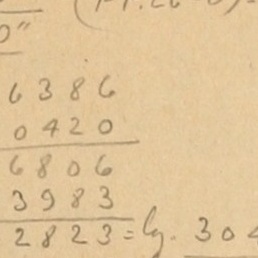 0"
6386
0420
6806
3983
2823 = lg. 304